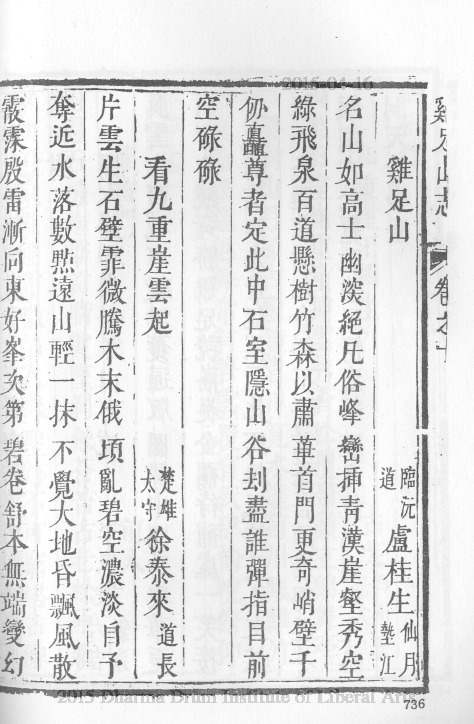 2015-04-16
雞足山志
卷之十
雞足山
臨沅道
盧桂生
仙月
墊江
名山如高士幽深絕凡俗峰巒揷靑漢崖壑秀空
綠飛泉百道懸樹竹森以肅華首門更奇峭壁千
仞矗尊者定此中石室隱山谷刦盡誰彈指目前
空碌碌
看九重崖雲起
楚雄
太守
徐泰來
道長
片雲生石壁霏微騰木末俄頃亂碧空濃淡自予
奪近水落數㸃遠山輕一抹不覺大地昏飄風散
霰霂殷雷漸向東好峯次第碧卷舒本無端變幻
2015 Dharma Drum Institute of Liberal Arts
736